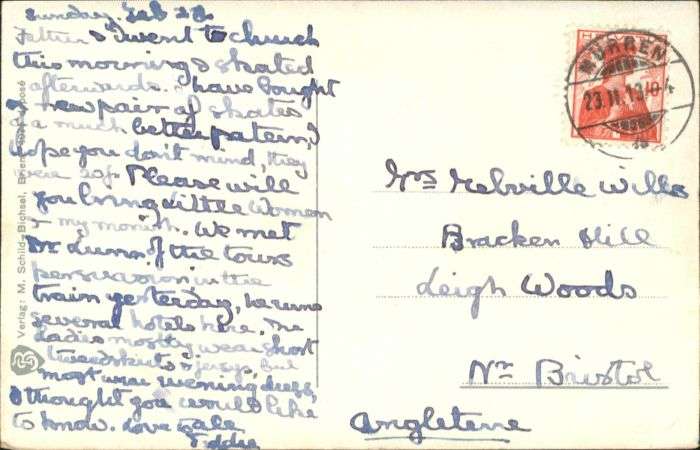 Sunday. Feb 23.
Father & I went to church
this morning & skated
afterwards. I have bought
a new pair of skates
of a much better patern, I
hope you don't mind, they
were
Please will
you bring Little Women
& my monish. We met
Dr Lunn, of the tours
persuasion in the
train yesterday, he runs
several hotels here. The
ladies mostly wear short
tweed skirts & jerseys, but
most wear evening dress,
I thought you would like
to know. Love to all
Verlag: M. Schild-Bichsel, Brienz
HELVETIA
MÜRREN
23.II.13
Mrs Melville Wills
Bracken Hill
Leigh Woods
Nr Bristol
Angleterre